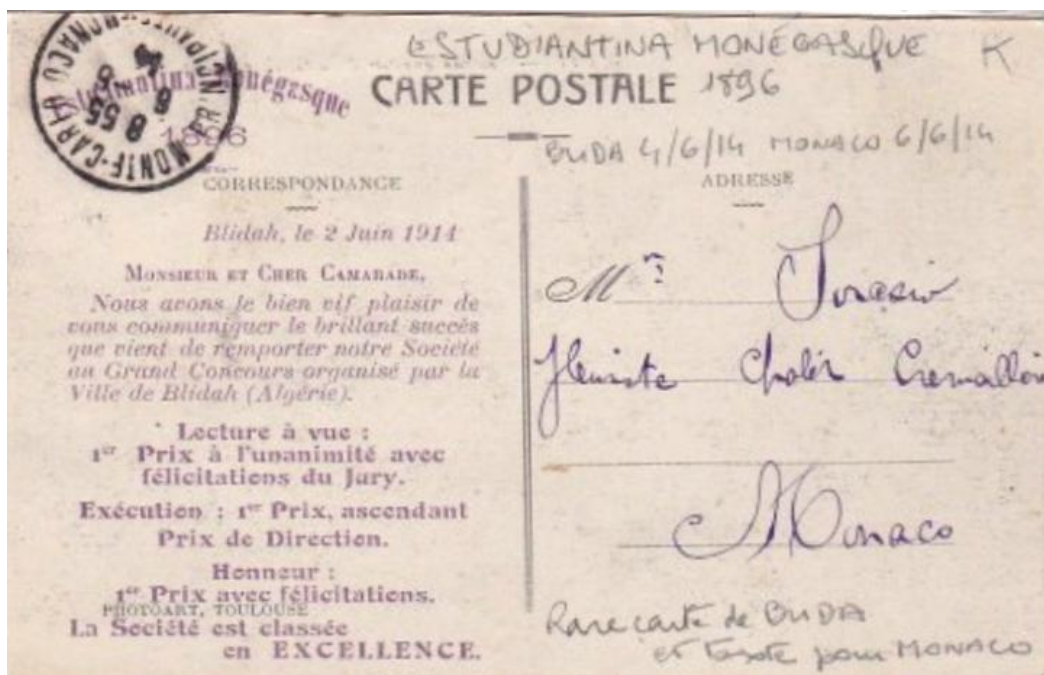 ESTUDIANTINA MONÉGASQUE K
Estudiantina Monégasque
CARTE POSTALE 1896
1896
MONTE-CARLO
8 55
BLIDA 4/6/14 MONACO 6/6/14
CORRESPONDANCE
ADRESSE
Blidah, le 2 Juin 1914
MONSIEUR ET CHER CAMARADE,
Nous avons le bien vif plaisir de
vous communiquer le brillant succès
que vient de remporter notre Société
au Grand Concours organisé par la
Ville de Blidah (Algérie).
Lecture à vue :
1er Prix à l'unanimité avec
félicitations du Jury.
Exécution : 1er Prix, ascendant
Prix de Direction.
Honneur :
1er Prix avec félicitations.
PHOTOART, TOULOUSE
La Société est classée
en EXCELLENCE.
Mr
fleuriste
Monaco
Rare carte de BLIDA
et pour MONACO